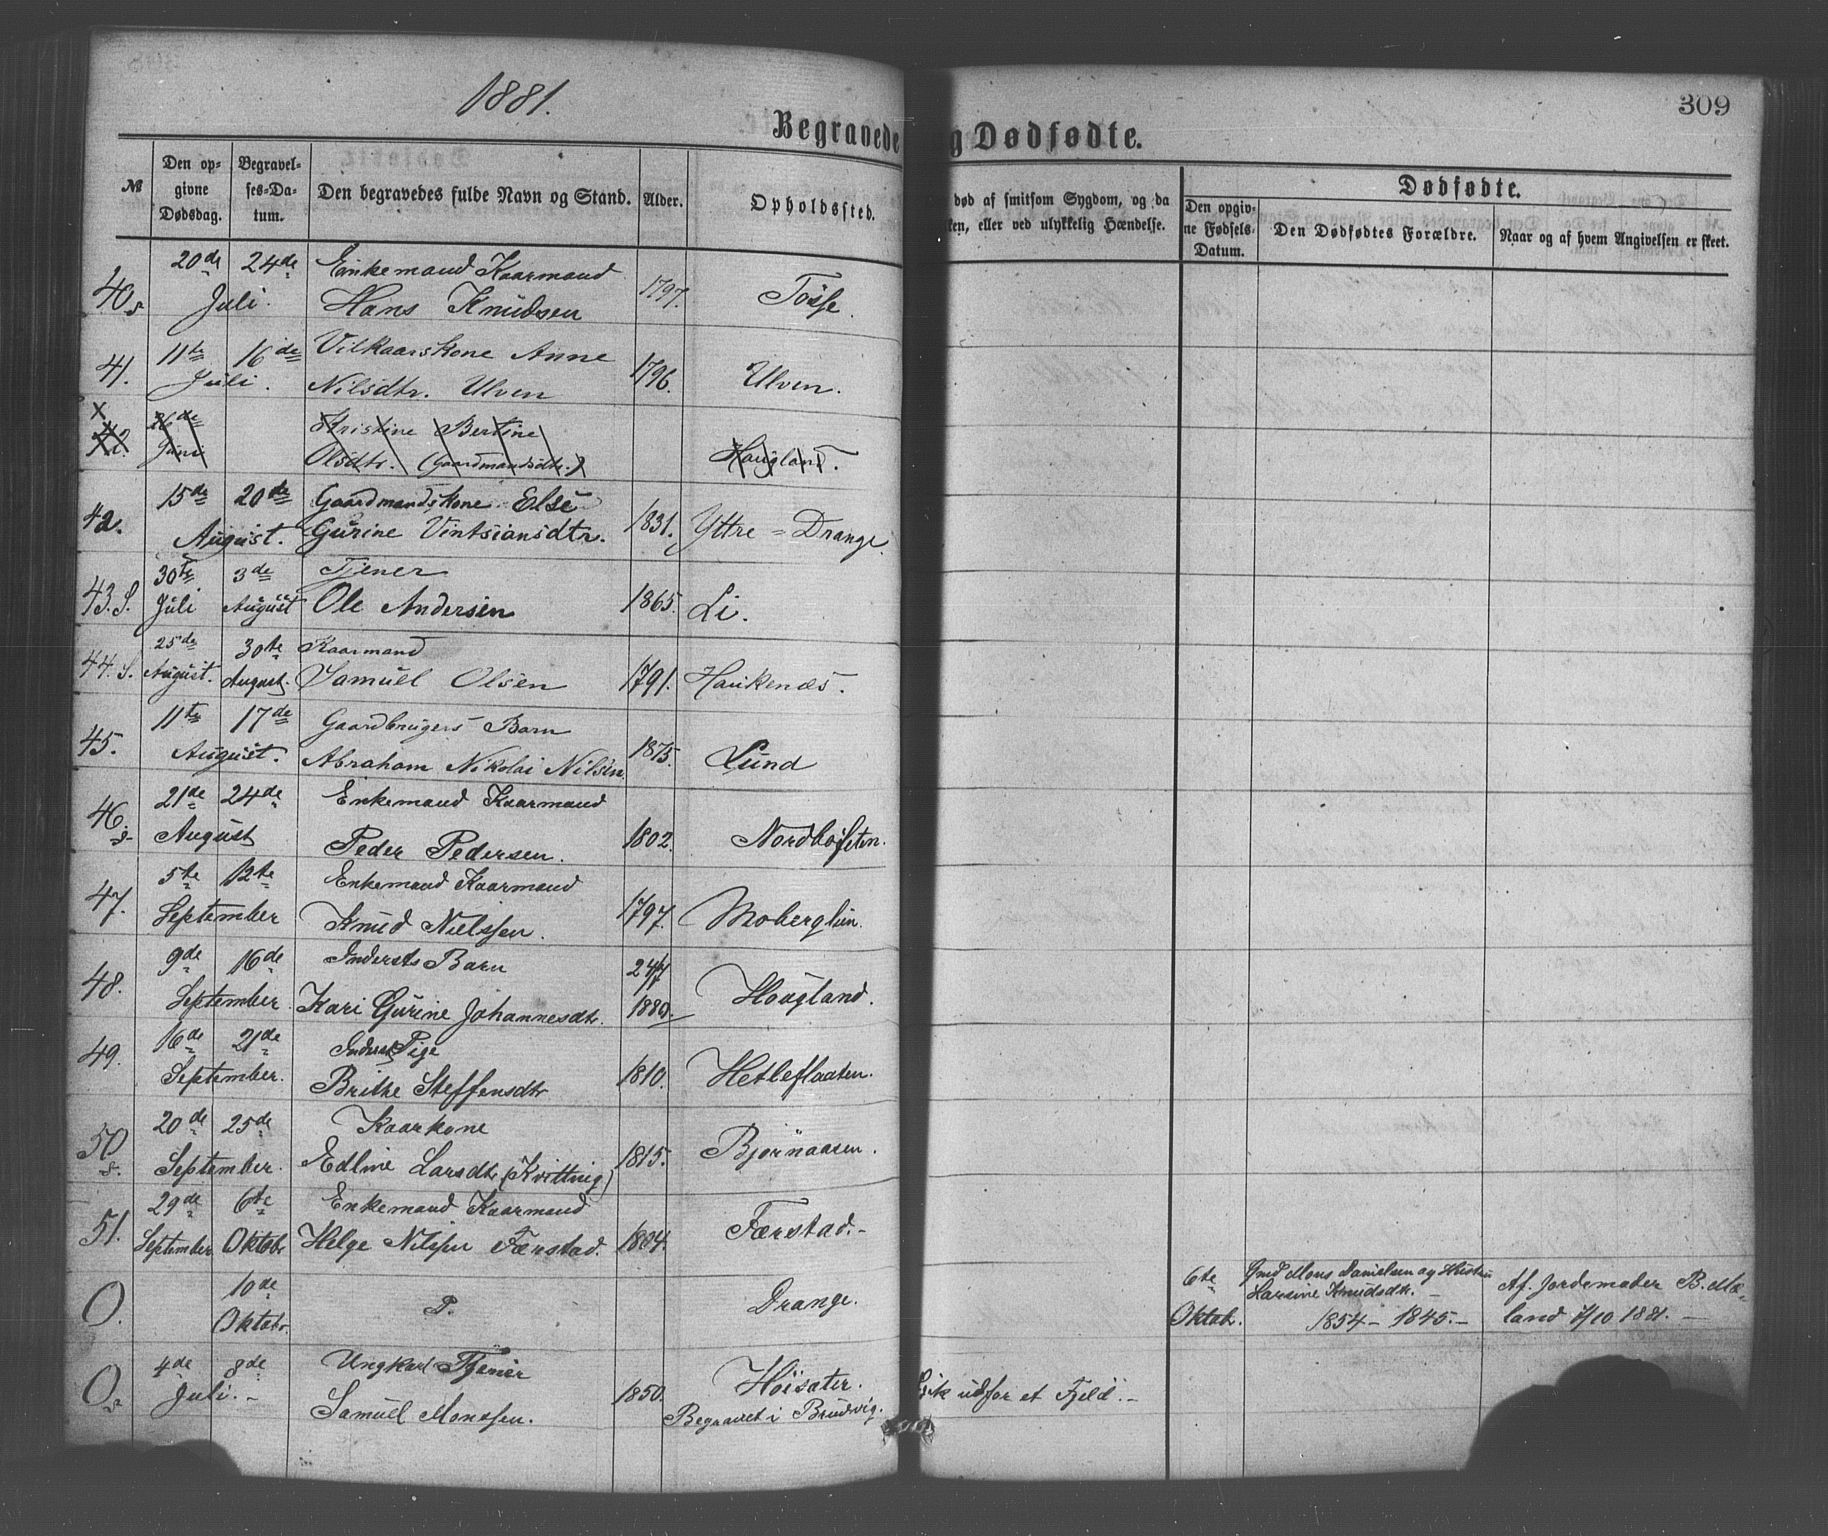 1881.
309
Begravede og Dødfødte.
№
Den op-
givne
Dødsdag.
Begravel-
ses-Da-
tum.
Den begravedes fulde Navn og Stand.
Alder.
Opholdssted.
død af smitsom Sygdom, og da
ken, eller ved ulykkelig Hændelse.
Dødfødte.
Den opgiv-
ne Fødsels-
Datum.
Den Dødfødtes Forældre.
Naar og af hvem Angivelsen er skeet.
20de 24de Enkemand Kaarmand
40. s Juli. Hans Knudsen 1797. Tøsse.
11te 16de Vilkaarskone Anne
41. Juli. Nilsdtr. Ulven 1796. Ulven.
X 26de Kristine Bertine
42. Juni Olsdtr. (Gaardmandsdtr.) Haugland.
15de 20de Gaardmandskone Else
42. August. Gurine Vintsiansdtr. 1831. Yttre = Drange.
30te 3de Tjener
43. S. Juli August Ole Andersen 1865. Li.
25de 30te Kaarmand
44. S. August. August. Samuel Olsen 1791. Haukenæs.
11te 17de Gaardbrugers Barn
45. August. Abraham Nikolai Nilsen 1875. Lund
21de 24de Enkemand Kaarmand
46. s. August Peder Pedersen. 1802. Nordtoften.
5te 12te Enkemand Kaarmand
47. September Knud Nielssen. 1797. Moberglien.
9de 16de Indersts Barn 24/7
48. September. Kari Gurine Johannesdtr. 1880. Hougland.
16de 21de Inderst Pige
49. September. Brithe Steffensdtr 1810. Hetleflaaten.
20de 25de Kaarkone
50 s. September. Edline Larsdtr (Kvittvig) 1815. Bjørnaasen.
29de 6te Enkemand Kaarmand
51. September Oktobr Helge Nilssen Færstad. 1804. Færstad.-
10de 6te Gmd Mons Danielsen og Hustru Af Jordemoder B. Mæ-
O. Oktobr. P. Drange. Oktobr. Larsine Knudsdtr. - 1854 - 1845. - land 7/10 1881. -
4de 8de Ungkarl Tjener Høisæter. Gik udfor et Fjeld. -
O. s. Juli. - Samuel Monssen. 1850. Begravet i Brudvig.